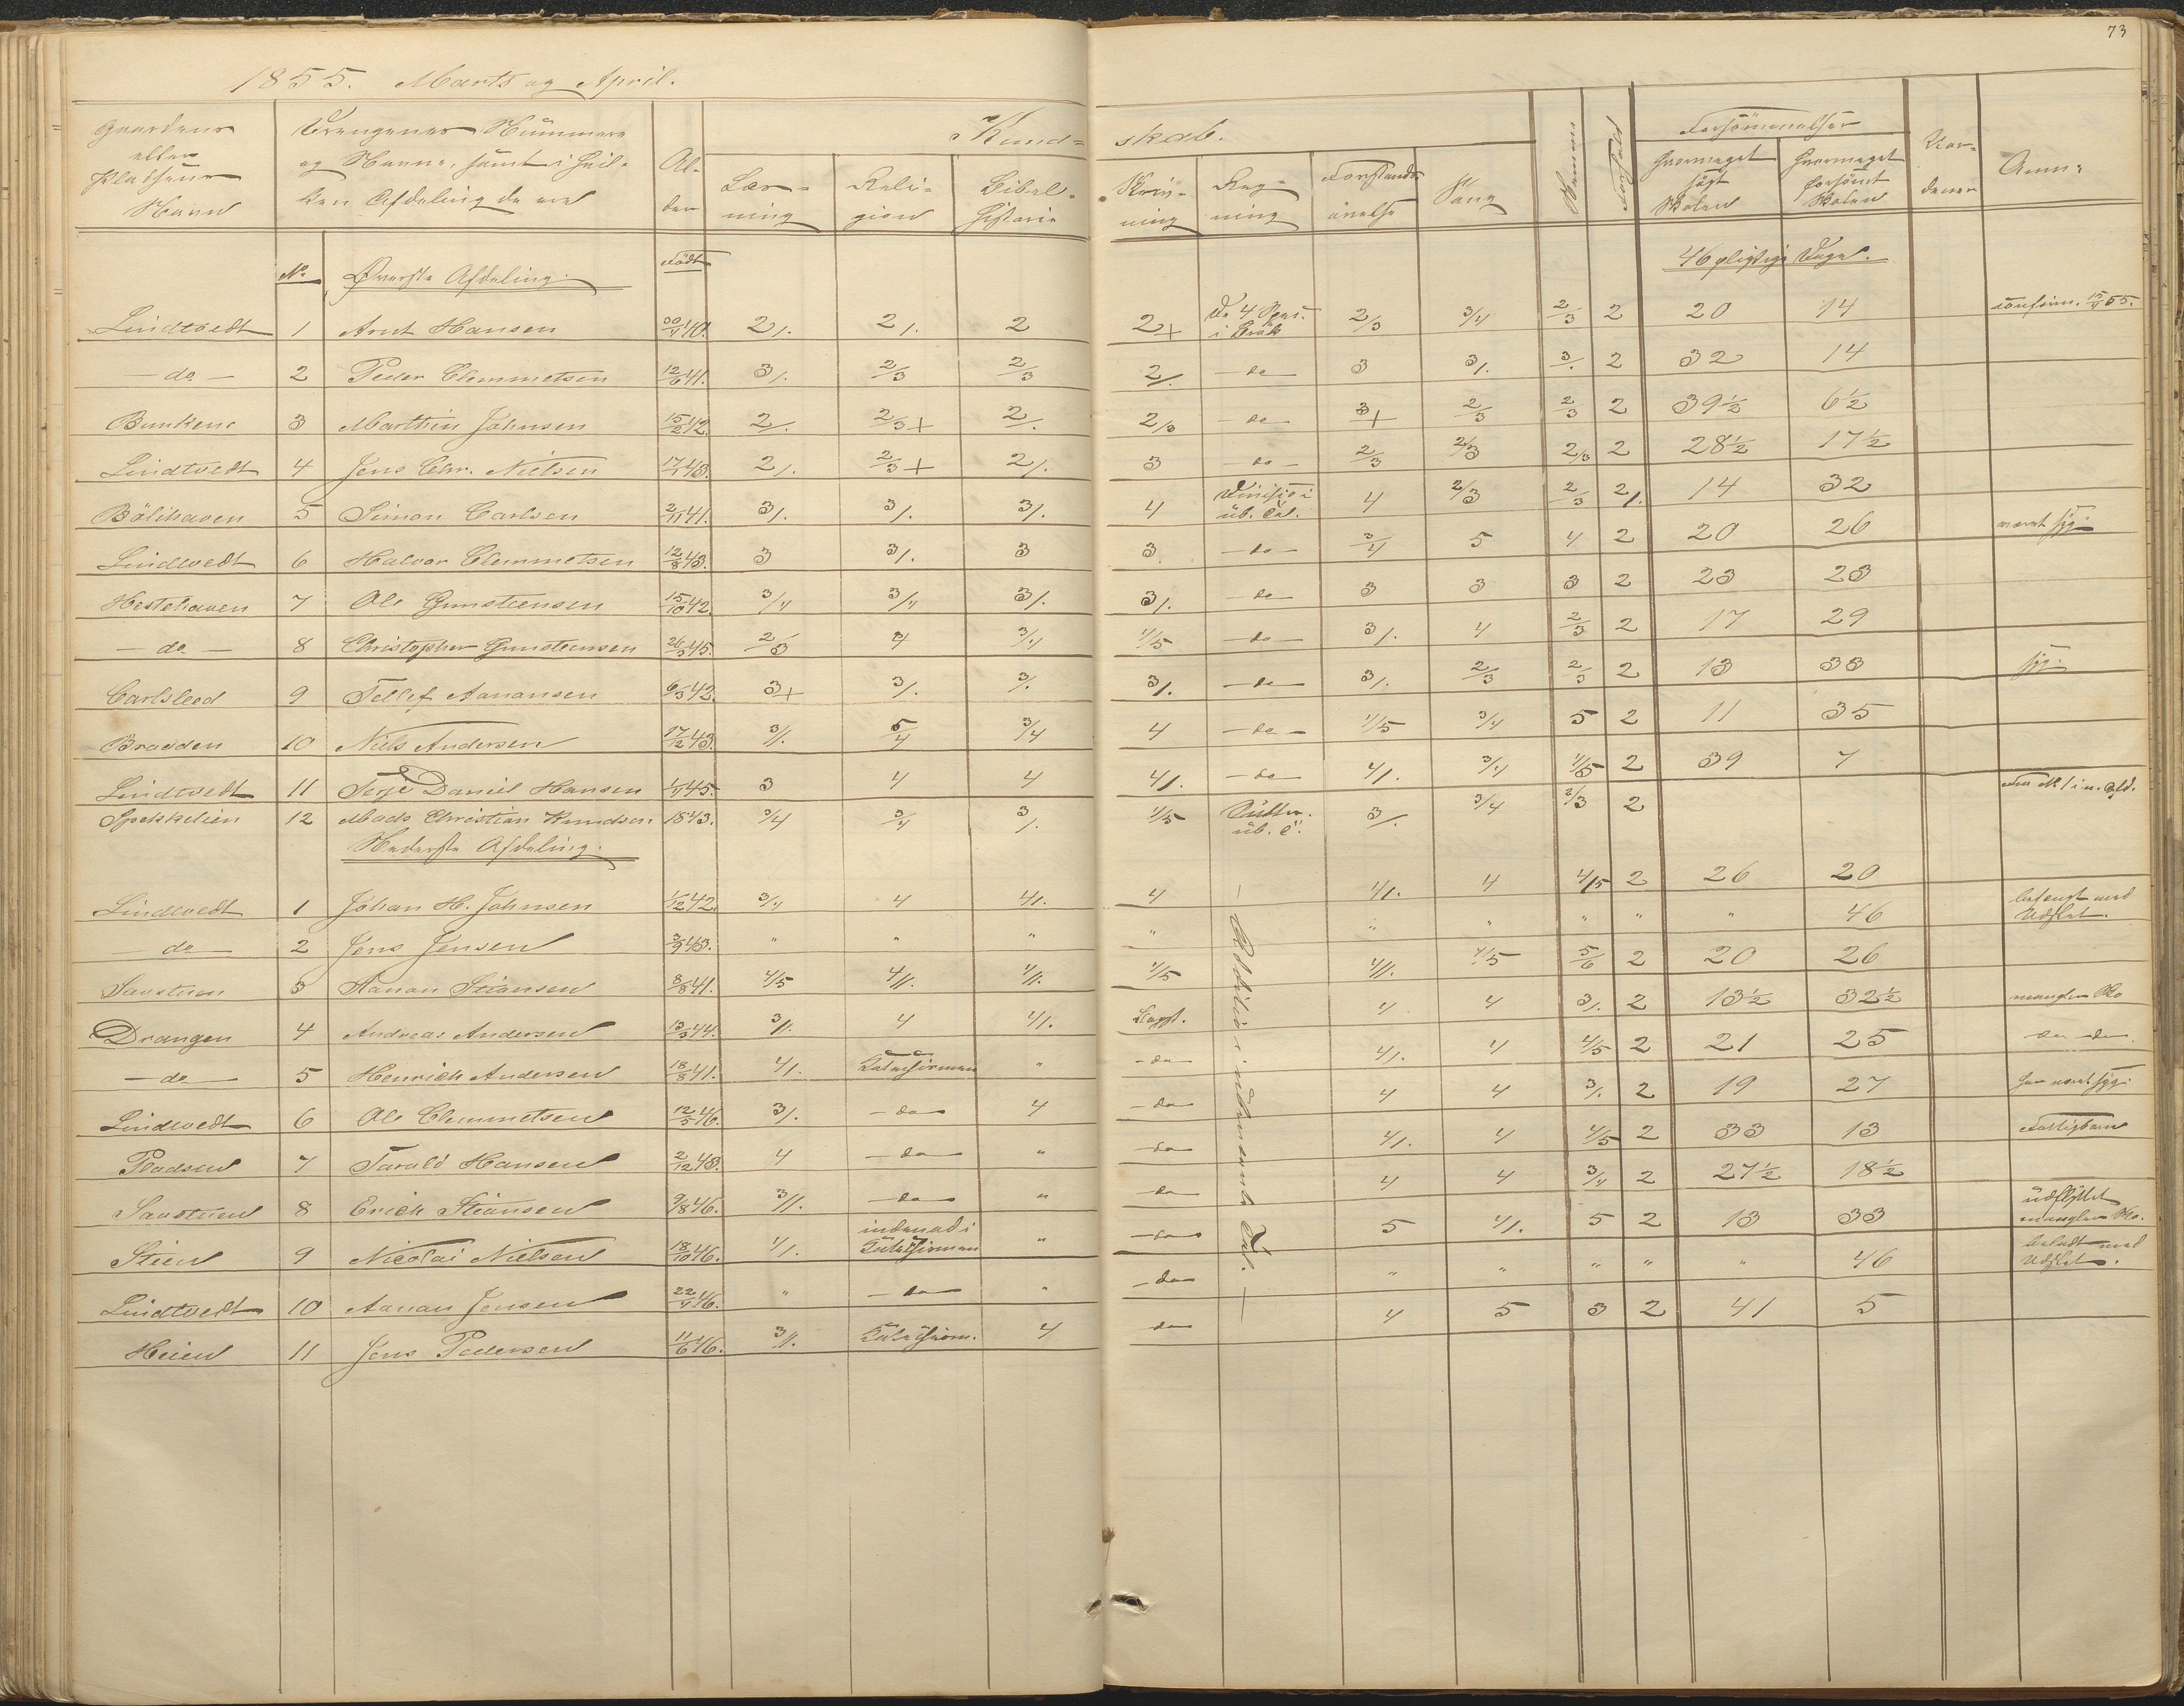 73
1855. Marts og April.
Gaardens eller Pladsens Navn | Drengenes Nummere og Navne, samt i hvilken Afdeling de ere | Alder | Kundskab. | Forsömmelser | Anm:
Læsning | Religion | Bibelhistorie | Skrivning | Regning | Forstandsövelse | Sang | Hvormeget sögt Skolen | Hvormeget forsömt Skolen
No | Øverste Afdeling. | Født | 46 pligtige Dage.
Lindtvedt | 1 | Arnt Hansen | 30/4 40. | 2/. | 2/. | 2 | 2+ | De 4 Spec. i Brök | 2/3 | 3/4 | 2/3 | 2 | 20 | 14 | confirm. 15/4 55.
— do — | 2 | Peder Clemmetsen | 12/6 41. | 3/. | 2/3 | 2/3 | 2/. | — do | 3 | 3/. | 3/. | 2 | 32 | 14
Bunkene | 3 | Marthin Johnsen | 15/2 42. | 2/. | 2/3+ | 2/. | 2/3 | — do — | 3+ | 2/3 | 2/3 | 2 | 39½ | 6½
Lindtvedt | 4 | Jens Chr. Nielsen | 17/1 43. | 2/. | 2/3+ | 2/. | 3 | — do — | 2/3 | 2/3 | 2/3 | 2 | 28½ | 17½
Bölihaven | 5 | Simon Carlsen | 2/11 41. | 3/. | 3/. | 3/. | 4 | Division i üb. Tal. | 4 | 2/3 | 2/3 | 2/. | 14 | 32
Lindtvedt | 6 | Halvor Clemmetsen | 12/8 43. | 3 | 3/. | 3 | 3 | — do — | 3/4 | 5 | 4 | 2 | 20 | 26 | været syg
Hestehaven | 7 | Ole Gunsteensen | 15/10 42. | 3/4 | 3/4 | 3/. | 3/. | — do | 3 | 3 | 3 | 2 | 23 | 23
— do — | 8 | Christopher Gunsteensen | 26/3 45. | 2/3 | 4 | 3/4 | 4/5 | — do — | 3/. | 4 | 2/3 | 2 | 17 | 29
Carlsleod | 9 | Tellef Aanansen | 6/3 42. | 3+ | 3/. | 3/. | 3/. | — do — | 3/. | 2/3 | 2/3 | 2 | 13 | 33 | syg.
Bradden | 10 | Niels Andersen | 17/12 43. | 3/. | 5/4 | 3/4 | 4 | — do — | 4/5 | 3/4 | 5 | 2 | 11 | 35
Lindtvedt | 11 | Terje Daniel Hansen | 1/1 45. | 3 | 4 | 4 | 4/. | — do | 4/. | 3/4 | 4/5 | 2 | 39 | 7
12 | Mads Christian Knudsen | 1843. | 3/4 | 3/4 | 3/. | 4/5 | 3/. | 3/4 | 2/3 | 2
Nederste Afdeling.
Lindtvedt | 1 | Johan H. Johnsen | 1/12 42. | 3/4 | 4 | 4/. | 4 | — Addition i ubenævnte Tal. — | 4/. | 4 | 4/5 | 2 | 26 | 20
— do — | 2 | Jens Jensen | 3/9 43. | " | " | " | " | " | " | " | " | " | 46 | befængt med Udslet.
Saustuen | 3 | Aanan Stiansen | 8/8 41. | 4/5 | 4//. | 4//. | 4/5 | 4//. | 4/5 | 5/6 | 2 | 20 | 26
Drangen | 4 | Andreas Andersen | 13/3 44. | 3/. | 4 | 4/. | 4 | 4 | 3/. | 2 | 13½ | 32½ | mangler Sko
— do — | 5 | Henrich Andersen | 18/8 41. | 4/. | Katechismen | " | — do | 4/. | 4 | 4/5 | 2 | 21 | 25 | do do
Lindtvedt | 6 | Ole Clemmetsen | 12/5 46. | 3/. | — do — | 4 | — do | 4 | 4 | 3/. | 2 | 19 | 27 | har været syg.
Pladsen | 7 | Tarald Hansen | 2/12 43. | 4 | — do — | " | do | 4/. | 4 | 4/5 | 2 | 33 | 13 | Fattigbarn
Saustuen | 8 | Erich Stiansen | 9/8 46. | 3//. | — do — | " | — do | 4 | 4 | 3/4 | 2 | 27½ | 18½
Stien | 9 | Nicolai Nielsen | 18/10 46. | 4/. | indenad i Katechismen | " | — do | 5 | 4/. | 5 | 2 | 13 | 33 | udflyttet mangler Sko.
Lindtvedt | 10 | Aanan Jensen | 22/4 46. | " | — do — | " | — do | " | " | " | " | " | 46 | Udslet.
Heien | 11 | Jens Pedersen | 11/6 46. | 3//. | Katechism. | 4 | do | 4 | 5 | 3 | 2 | 41 | 5